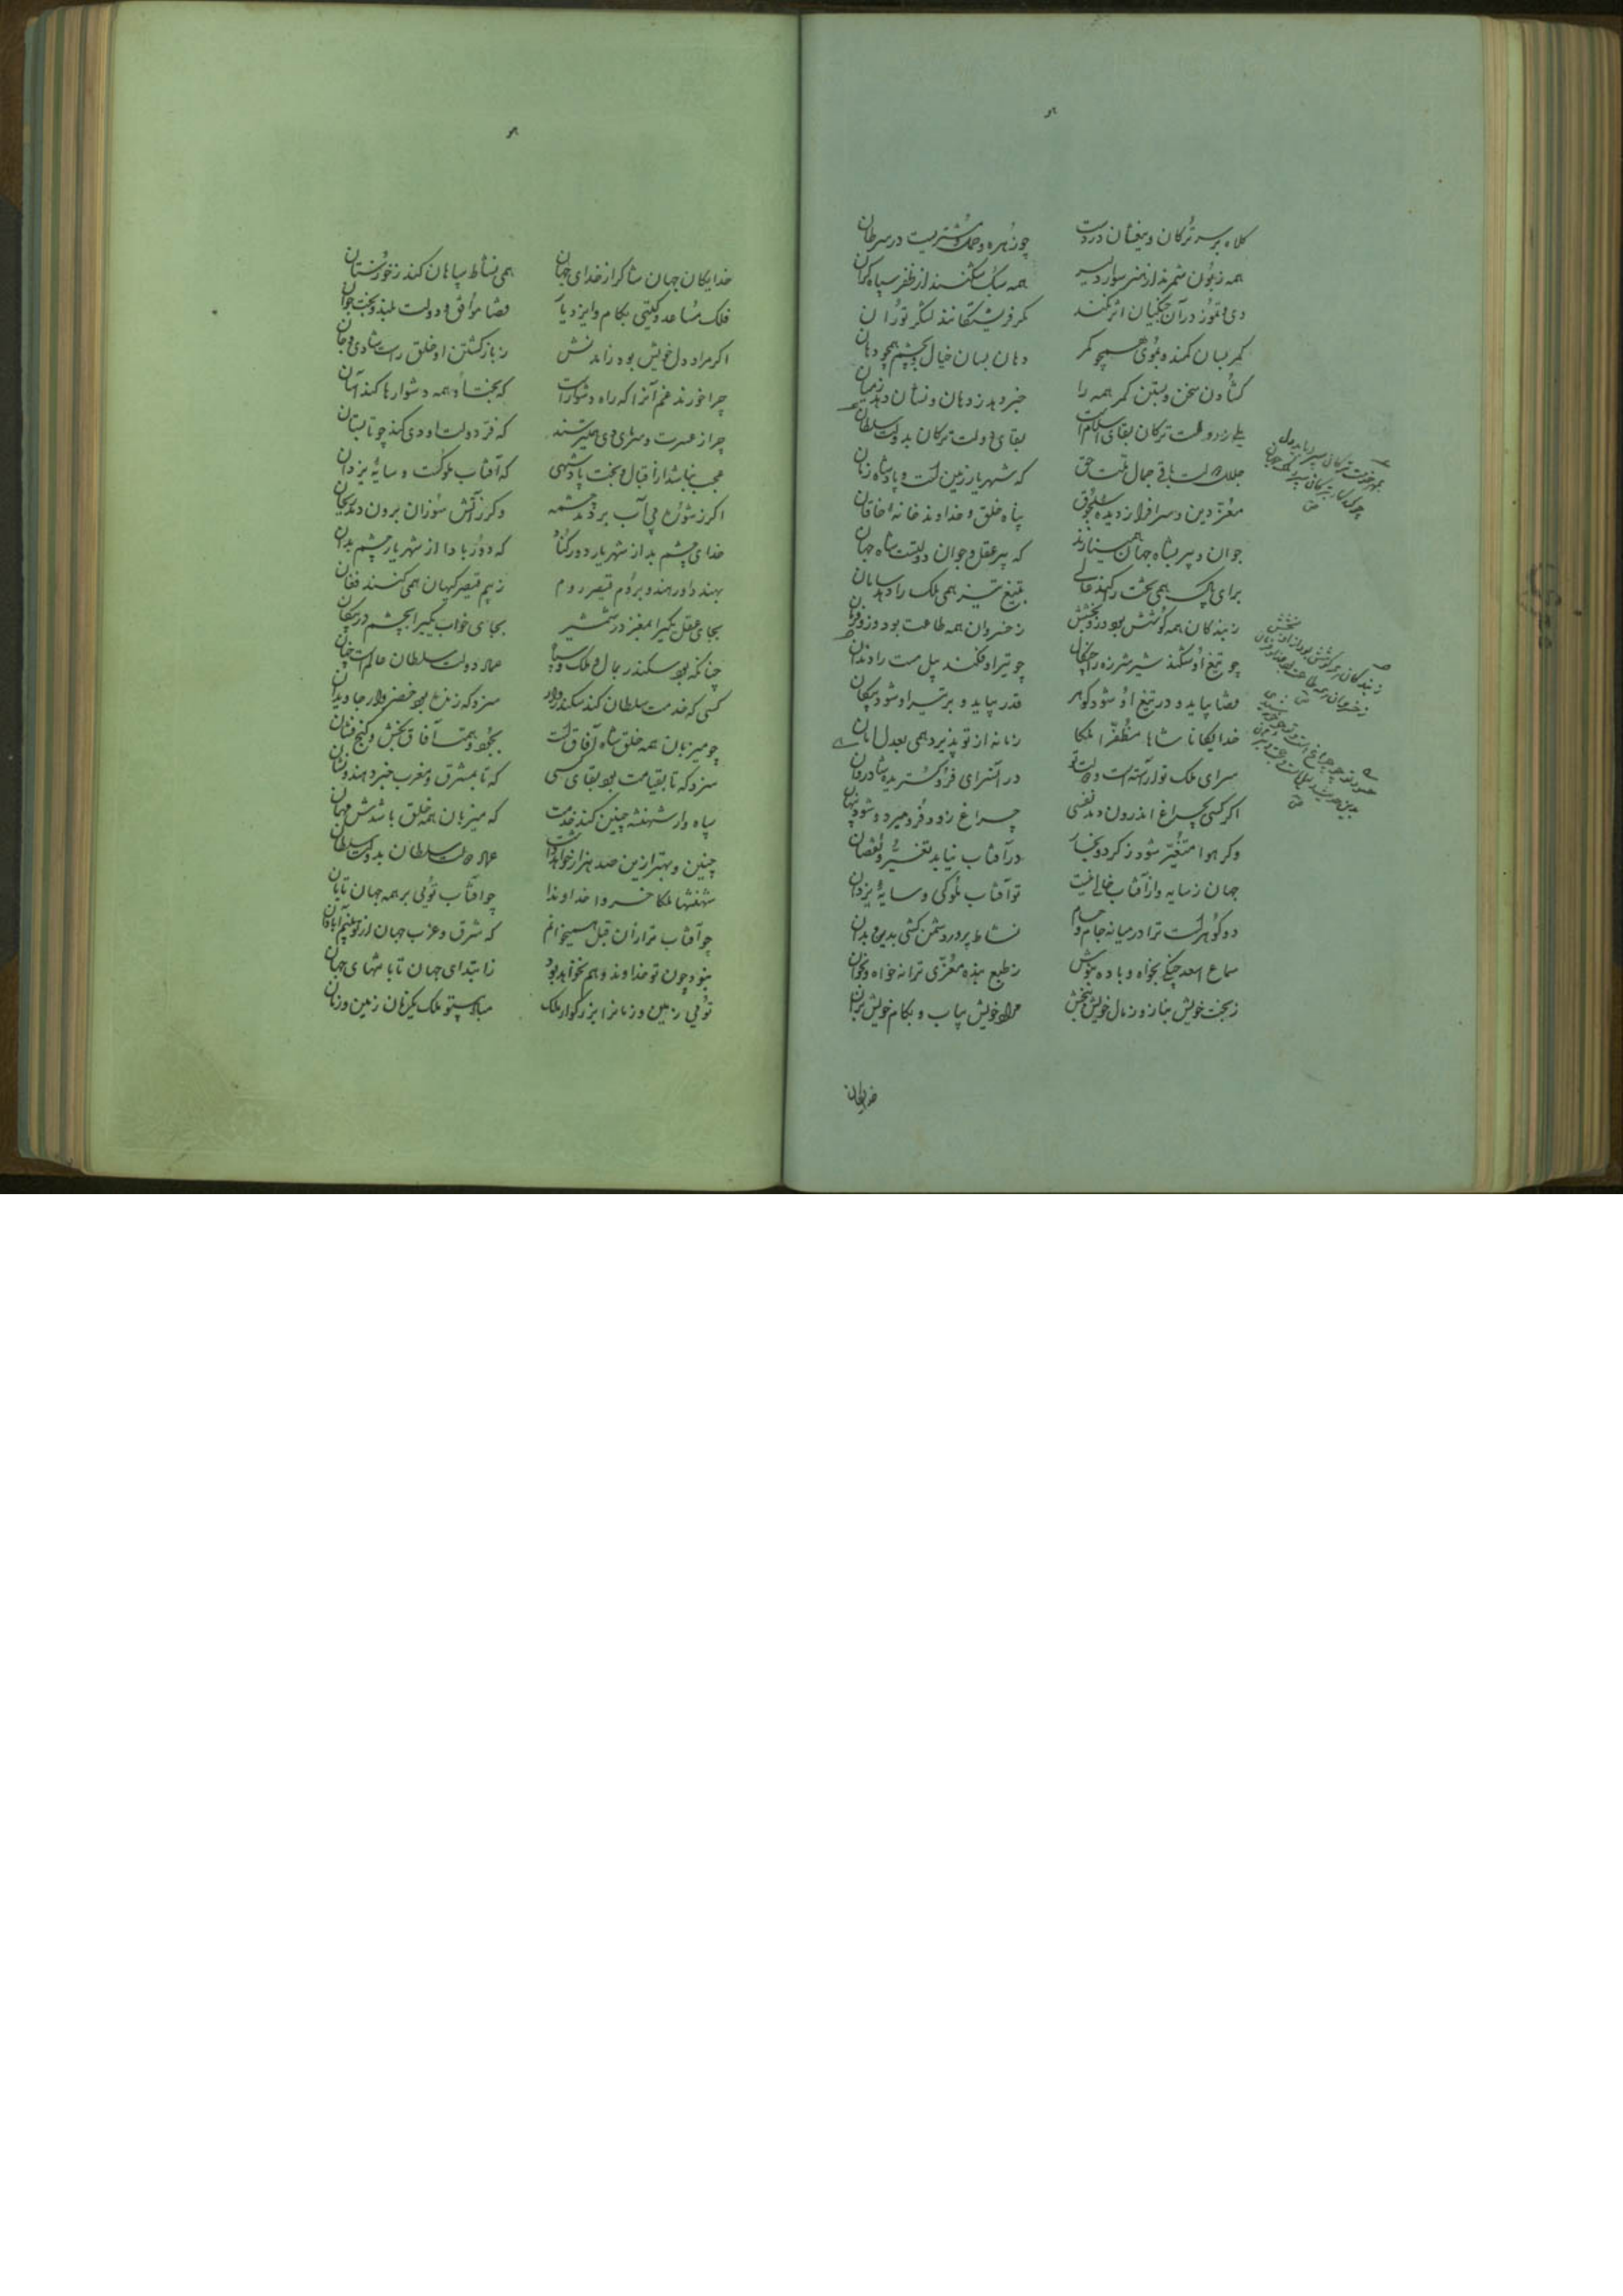 کلاه بر سر ترکان و تیغشان در دست چو زهره و حمل و مشتریست در سرطان
همه زبون شمرند از هنر سوار دلیر همه سبک شکنند از ظفر سپاه گران
دی و تموز در آن جنگیان اثر نکند مگر فرشتگانند لشکر توران
کمر بسان کمند و بموی همچو کمر دهان بسان خیال و بچشم همچو دهان
گشادن سخن و بستن کمر همه را خبر دهد ز دهان و نشان دهد ز میان
بقای دولت ترکان بدولت سلطان
جلال دولت باقی جمال ملت حق که شهریار زمین است و پادشاه زمان
معز دین و سرافراز دیده سلجوق پناه خلق و خداوند خانه خاقان
جوان و پیر بشاه جهان همی نازند که پیر عقل و جوان دولتست شاه جهان
برای پاک همی بخت را کند عالی بتیغ تیز همی ملک را دهد سامان
ز بندگان همه کوشش بود و زو بخشش ز خسروان همه طاعت بود و زو فرمان
چو تیغ او شکند شیر شرزه را چنگال چو تیر او فکند پیل مست را دندان
قضا بیاید و در تیغ او شود گوهر قدر بیاید و بر تیر او شود پیکان
خدایگانا شاها مظفرا ملکا زمانه از تو پذیرد همی بعدل امان
سرای ملک تو آراسته است دولت تو در آن سرای فرو گستریده شادروان
اگر کسی بچراغ اندرون دمد نفسی چراغ زود فرو میرد و شود پنهان
وگر هوا متغیر شود ز گرد و بخار در آفتاب نیاید تغیر و نقصان
جهان ز سایه و از آفتاب خالی نیست تو آفتاب ملوکی و سایهٔ یزدان
دو گوهر است ترا در میانه جام و حسام نشاط پرور و دشمن کشی بدین و بدان
سماع اسعد چنگی بخواه و باده بنوش ز طبع بنده معزی ترانه خواه و بخوان
ز بخت خویش بناز و ز مال خویش ببخش مراد خویش بیاب و بکام خویش بران
خدایگان
خدایگان جهان شاکر از خدای جهان همی نشاط سپاهان کند ز خوزستان
فلک مساعد و گیتی بکام و ایزد یار قضا موافق و دولت بلند و بخت جوان
اگر مراد دل خویش بود ز آمدنش ز بازگشتن او خلق راست شادی جان
چرا خورند غم آنرا که راه دشوارست که بخت او همه دشوارها کند آسان
که فر دولت او دی کند چو تابستان
عجب نباشد از اقبال و بخت پادشهی که آفتاب ملوکست و سایهٔ یزدان
اگر ز شوره پی آب بر دمد چشمه وگر ز آتش سوزان برون دمد ریحان
خدای چشم بد از شهریار دور کناد که دور بادا از شهریار چشم بدان
بهند داور هند و بروم قیصر روم ز بیم قیصر کیهان همی کنند فغان
بجای عقل بگیرا بمغز در شمشیر بجای خواب بگیرا بچشم در پیکان
چنانکه بود سکندر بمال و ملک و سپاه عماد دولت سلطان عالم است چنان
کسی که خدمت سلطان کند سکندروار سزد که زنده بود خضروار جاویدان
چو میزبان همه خلق شاه آفاق است بجود و همت آفاق بخش و گنج فشان
سزد که تا بقیامت بود بقای کسی که تا بمشرق و مغرب خبر دهند و نشان
سپاه دار شهنشه چنین کند خدمت که میزبان همه خلق باشدش مهمان
چنین و بهتر ازین صد هزار خواهد داشت عماد دولت سلطان بدولت سلطان
شهنشها ملکا خسروا خداوندا چو آفتاب توئی بر همه جهان تابان
چو آفتاب ترا زان قبل همی خوانم که شرق و غرب جهان از تو بینم آبادان
نبود چون تو خداوند و هم نخواهد بود ز ابتدای جهان تا بانتهای جهان
توئی زمین و زمانرا بزرگوار ملک مباد بیتو ملک یکزمان زمین و زمان